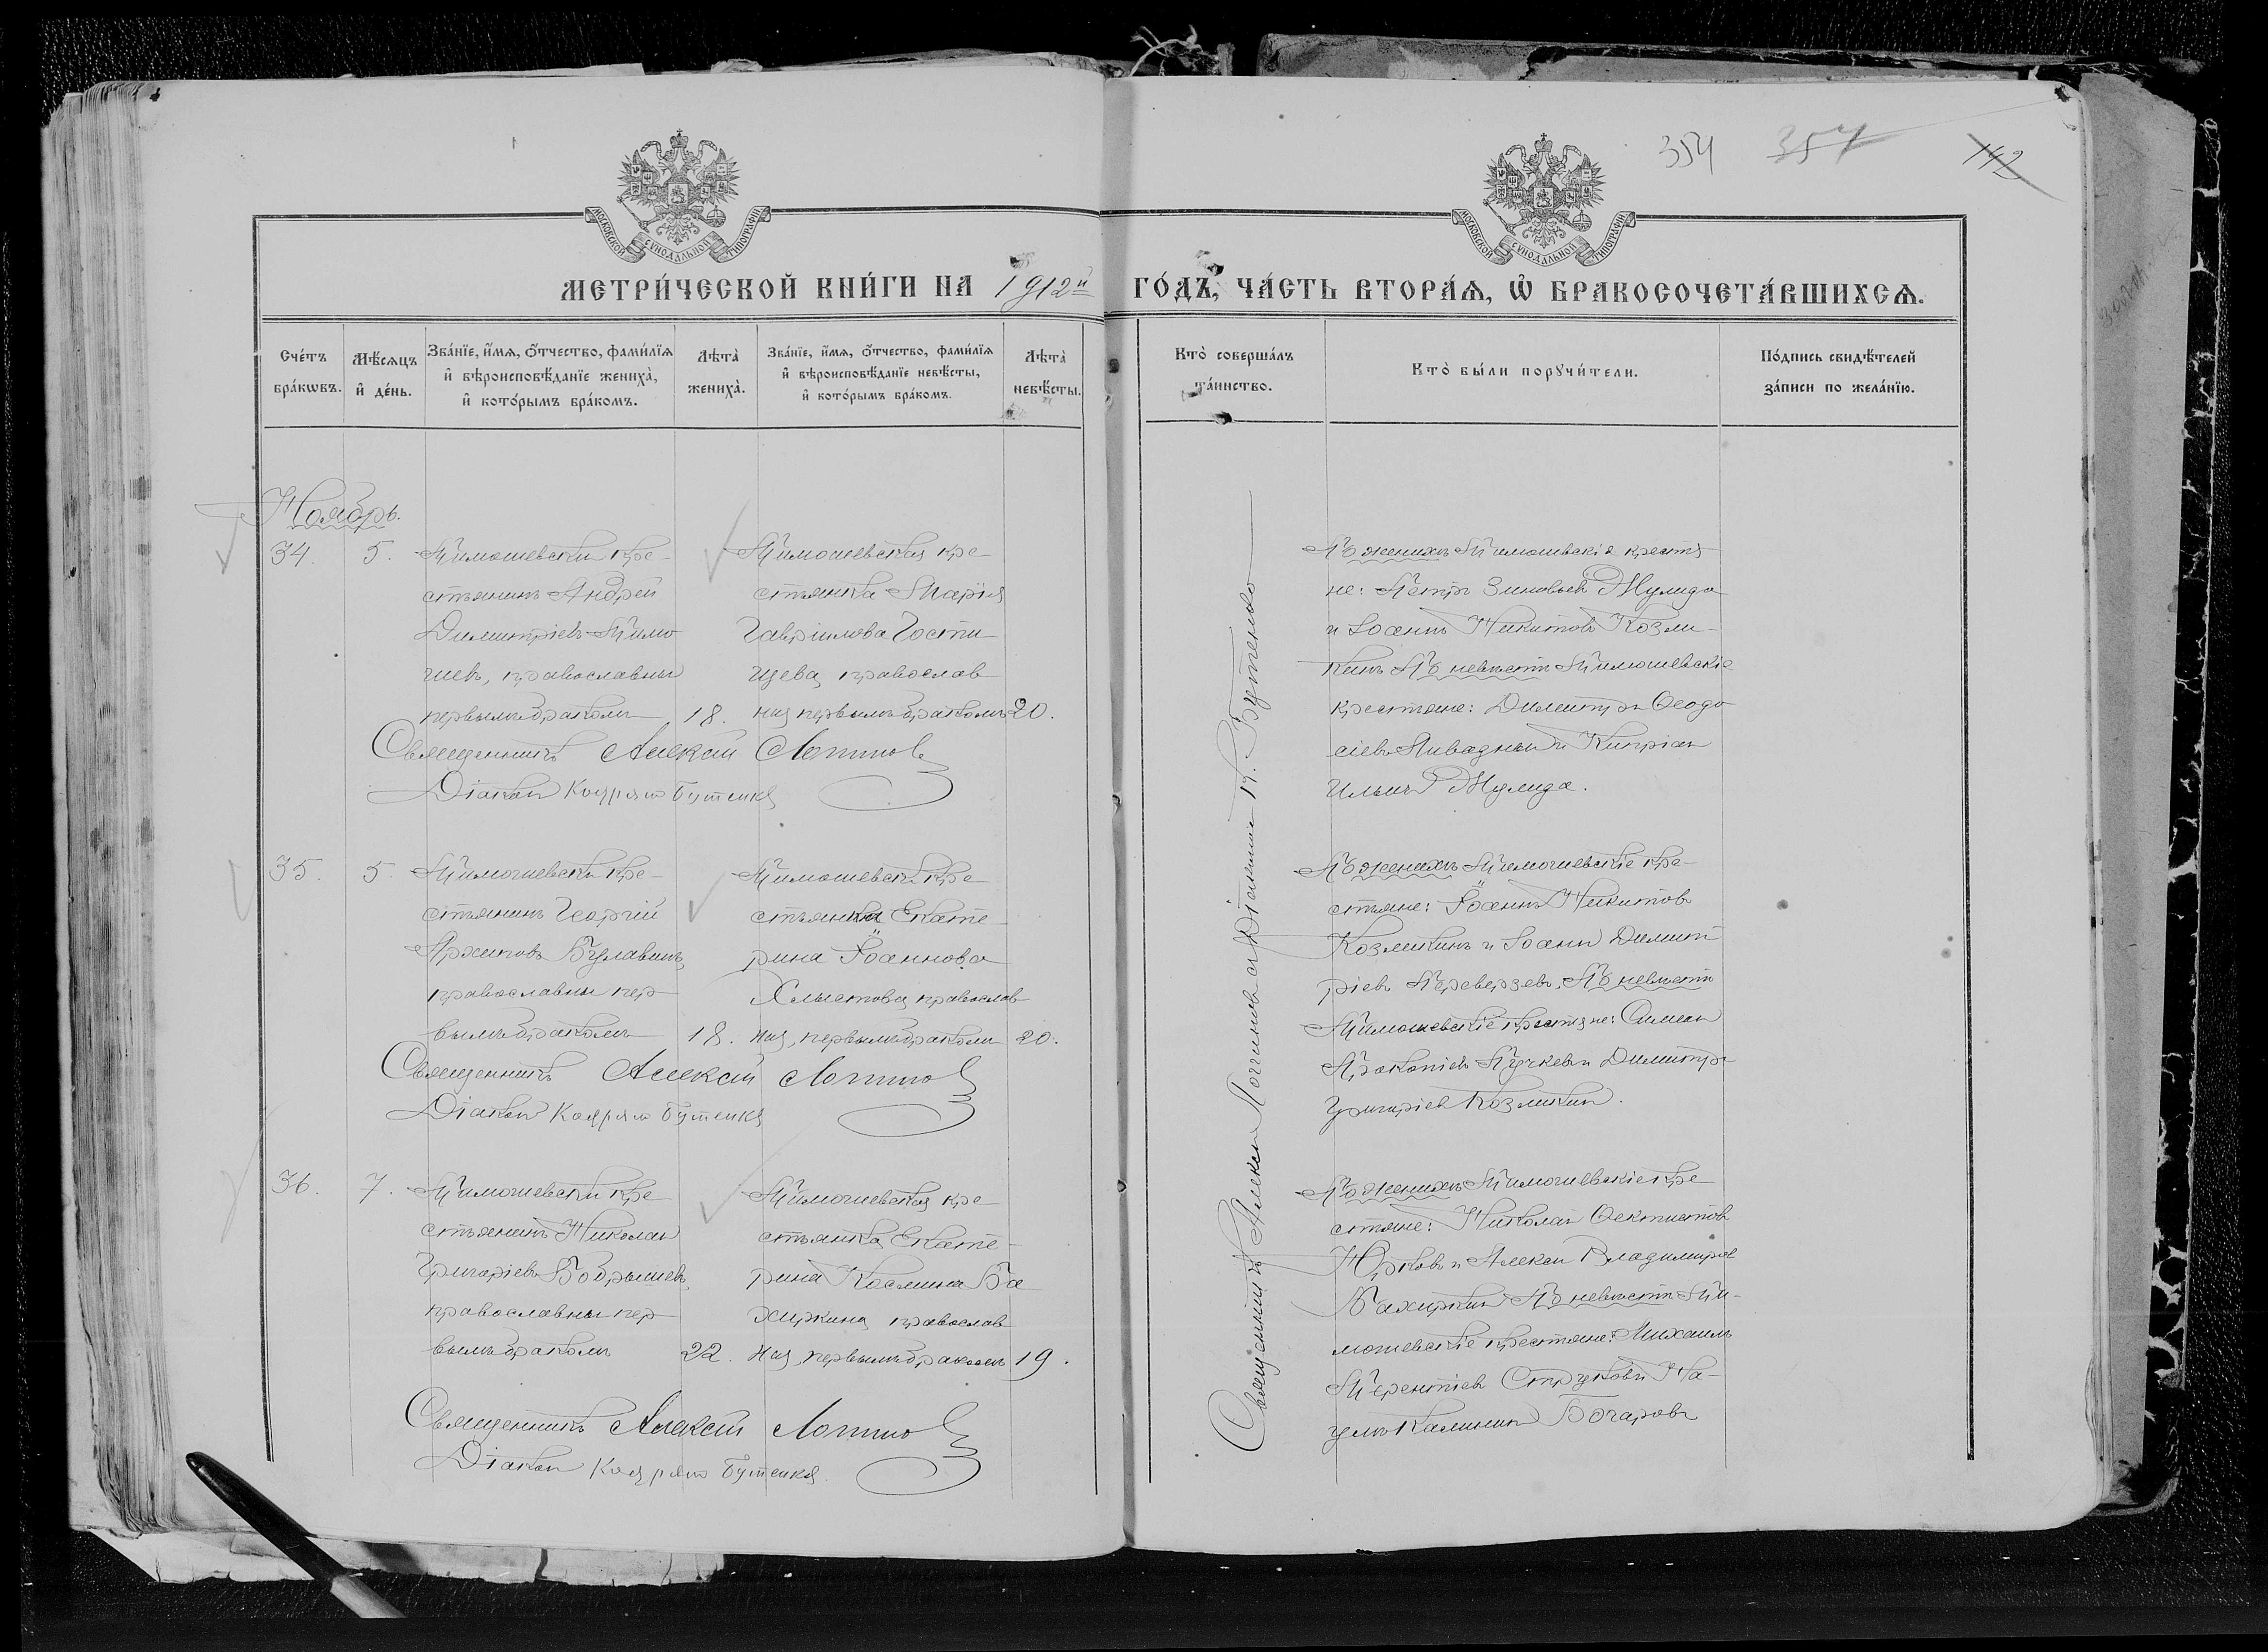 354 357 142
МОСКОВСКОЙ СѴНОДАЛЬНОЙ ТИПОГРАФІИ
МОСКОВСКОЙ СѴНОДАЛЬНОЙ ТИПОГРАФІИ
МЕТРИ́ЧЕСКОЙ КНИ́ГИ НА 1912й ГО́ДЪ, ЧА́СТЬ ВТОРА́Ѧ, Ѽ БРАКОСОЧЕТА́ВШИХСѦ.
Сче́тъ бра́кѡвъ.
Мѣ́сяцъ и҆ де́нь.
Зва́нїе, и҆́мѧ, ѻ҆́тчество, фами́лїѧ и҆ вѣроисповѣ́данїе жениха̀, и҆ кото́рымъ бра́комъ.
Лѣта̀ жениха̀.
Зва́нїе, и҆́мѧ, ѻ҆́тчество, фами́лїѧ и҆ вѣроисповѣ́данїе невѣ́сты, и҆ кото́рымъ бра́комъ.
Лѣта̀ невѣ́сты.
Кто̀ соверша́лъ та́инство.
Кто̀ бы́ли порꙋчи́тели.
По́дпись свидѣ́телей за́писи по жела́нїю.
Ноябрь.
34. 5.
Тимошевский кре-
стьянинъ Андрей
Димитріевъ Тимо
шевъ, православный
первымъ бракомъ 18.
Тимошевская кре
стьянка Марія
Гавріилова Гости
щева православ
ная первымъ бракомъ 20.
Священникъ Алексій Логинов
Діаконъ Кондратъ Бутенко
По женихѣ Тимошевскіе крестья
не: Петръ Зиновьевъ Жулида
и Іоаннъ Никитовъ Козли-
кинъ По невѣстѣ Тимошевскіе
крестьяне: Димитрій Ѳеодо
сіевъ Ливадный и Кипріанъ
Ильинъ Жулида.
35. 5.
Тимошевский кре-
стьянинъ Георгій
Архиповъ Булавинъ,
православный пер
вымъ бракомъ 18.
Тимошевск кре
стьянка Екате
рина Іоаннова
Хлыстова православ
ная, первымъ бракомъ 20.
Священникъ Алексій Логинов
Діаконъ Кондратъ Бутенко
По женихѣ Тимошевскіе кре-
стьяне: Іоаннъ Никитовъ
Козликинъ и Іоаннъ Димит
ріевъ Переверзевъ. По невѣстѣ
Тимошевскіе крестьяне: Симеонъ
Прокопіевъ Пучкевъ и Димитрій
Григоріевъ Козликинъ.
36. 7.
Тимошевский кре
стьянинъ Николай
Григоріевъ Бобрышевъ,
православный пер
вымъ бракомъ 22.
Тимошевская кре
стьянка Екате-
рина Косьмина Ба
хиркина православ
ная, первымъ бракомъ 19.
Священникъ Алексій Логинов
Діаконъ Кондратъ Бутенко
По женихѣ Тимошевскіе кре
стьяне: Николай Ѳеоктистовъ
Юрковъ и Алексій Владиміровъ
Бахиркинъ По невѣстѣ Ти-
мошевскіе крестьяне: Михаилъ
Терентіевъ Струковъ и На-
умъ Калининъ Бочаровъ
Священникъ Алексій Логиновъ съ Діакономъ К. Бутенко